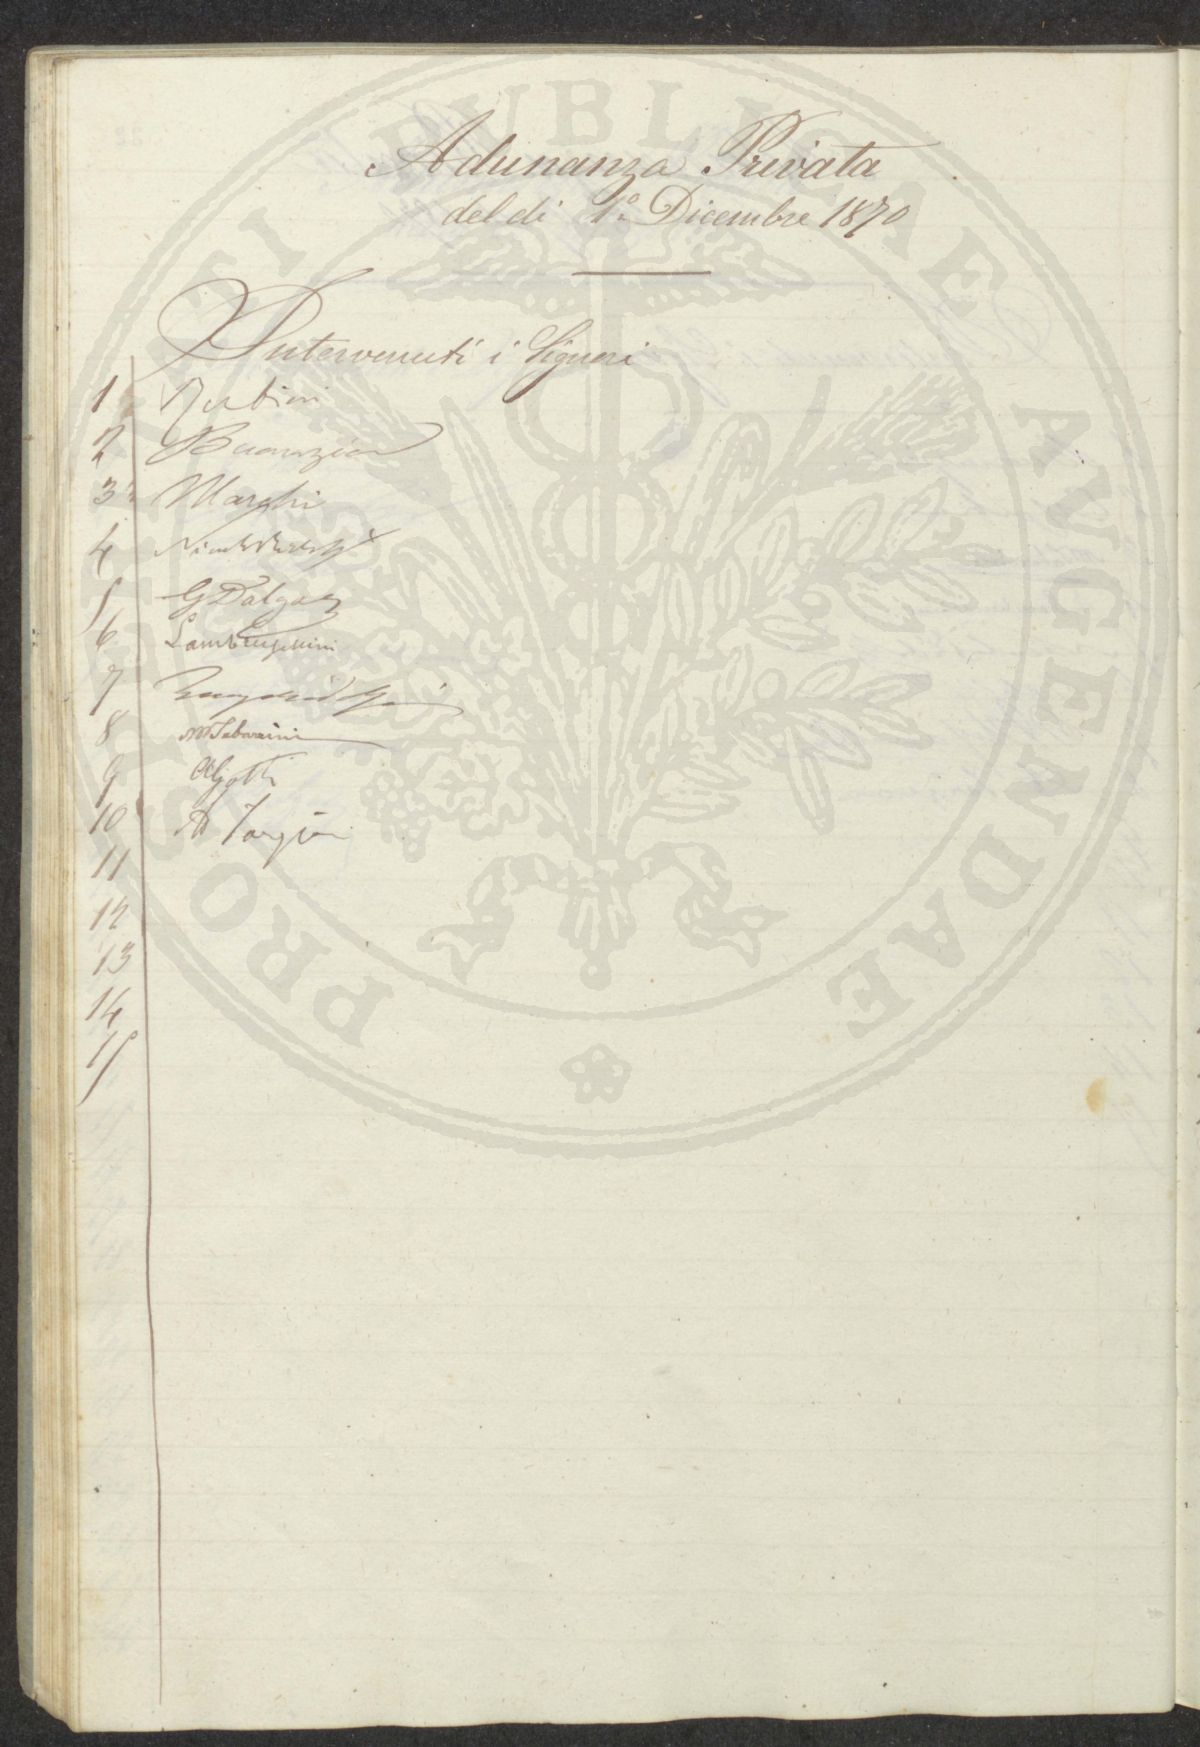 Adunanza Privata
del dì 1° Dicembre 1870
Intervenuti i Signori
1 Rubieri
2
3 Marchi
4
5 G Dalgas
6 Lambruschini
7
8 M Tabarrini
9
10 A Targioni
11
12
13
14
15
PROSPERITATI PUBLICAE AUGENDAE